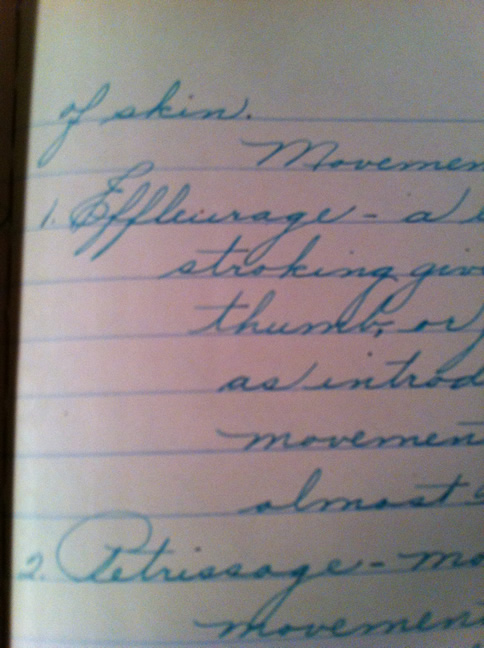 of skin.
Movemen
1. Effleurage - a
stroking give
thumb, or
as introd
movemen
almost
2. Petrissage - mo
movemen